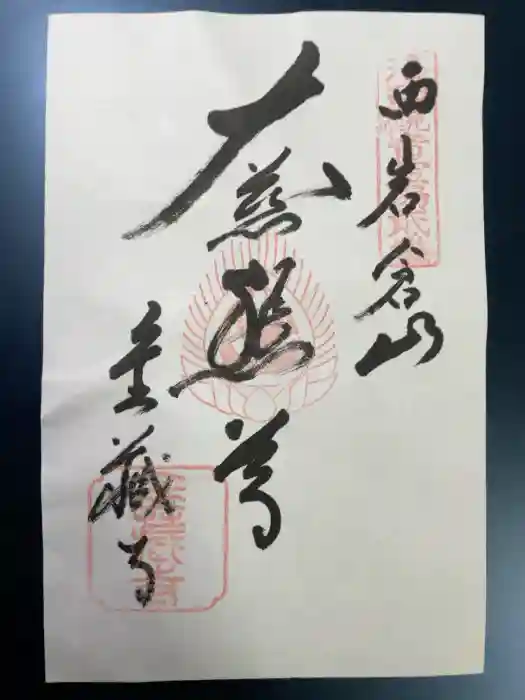 西岩倉山
大慈悲尊
金蔵寺